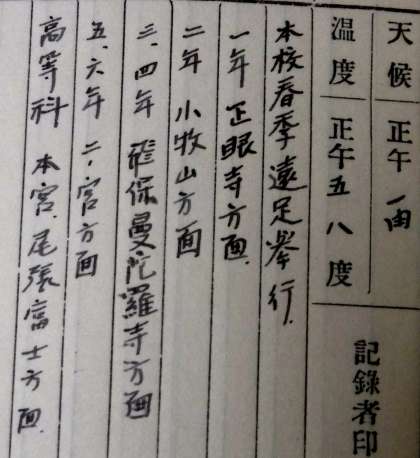 天候 正午 雨
温度 正午五八度
記録者印
本校春季遠足挙行.
一年 正眼寺方面.
二年 小牧山方面
三、四年 飛保曼陀羅寺方面
五、六年 二ノ宮方面
高等科 本宮、尾張富士方面.